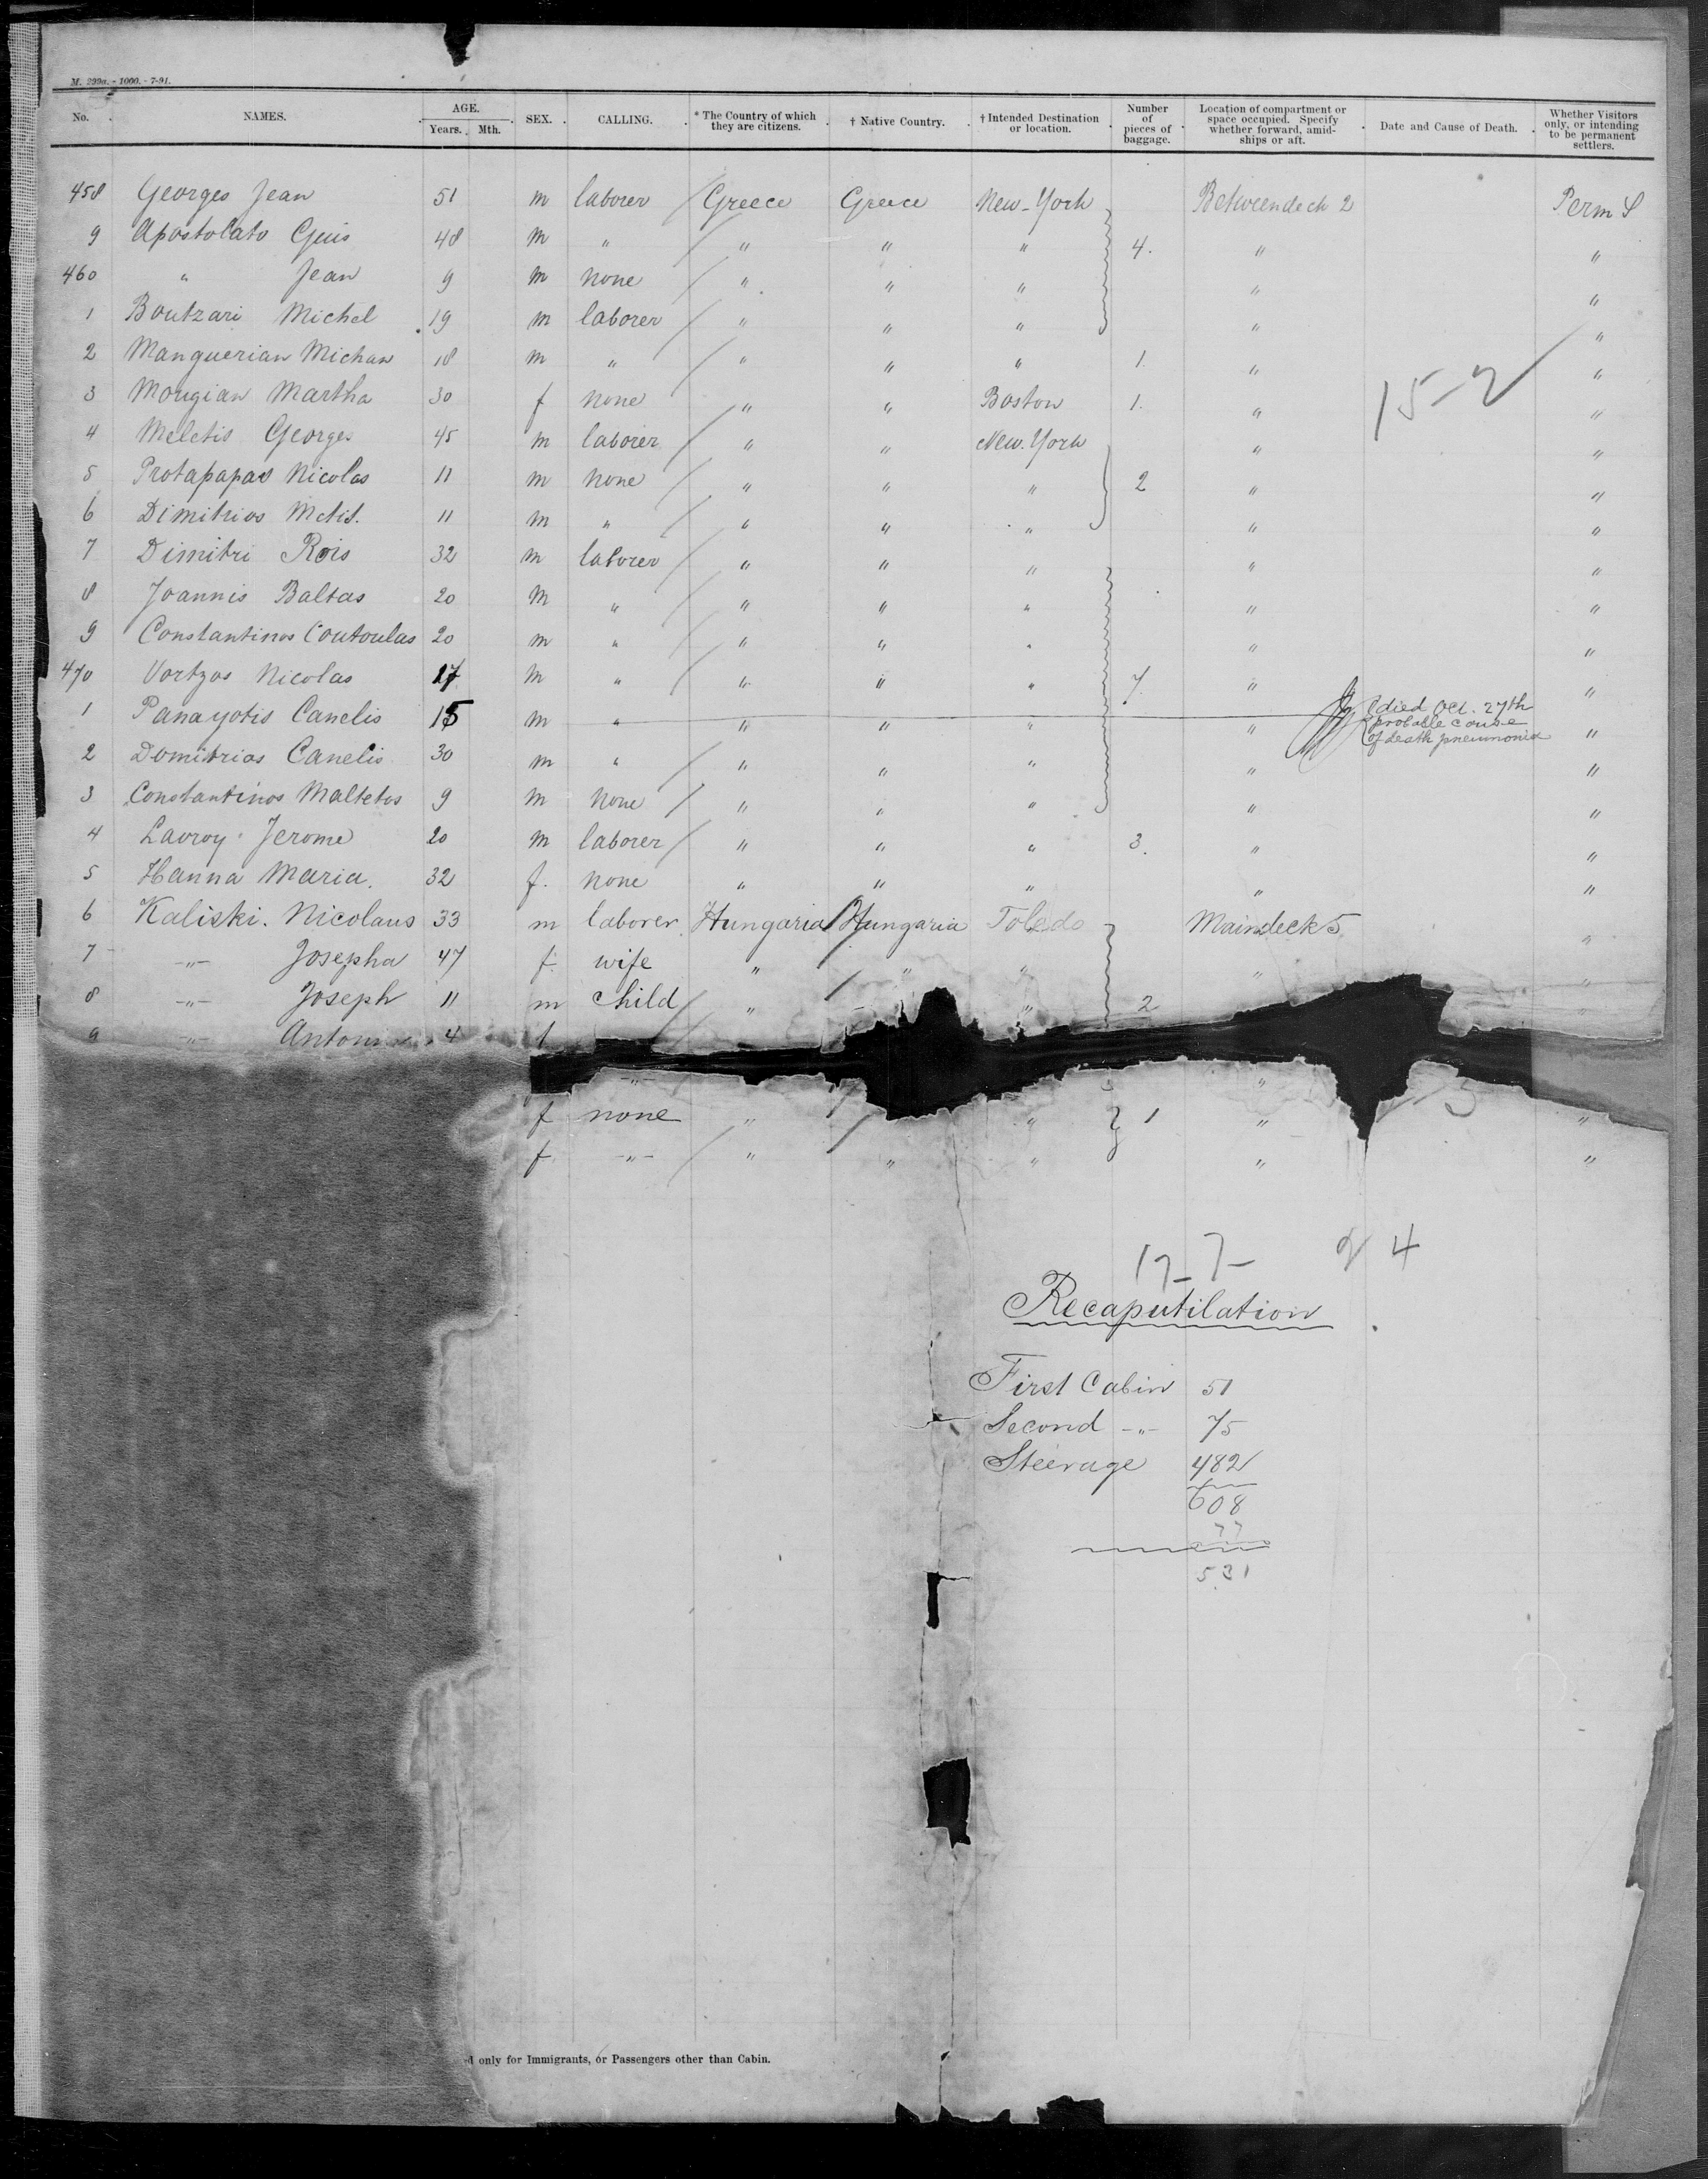 M. 299a. - 1000. - 7-91.
No. NAMES. AGE. Years. Mth. SEX. CALLING. * The Country of which they are citizens. † Native Country. † Intended Destination or location. Number of pieces of baggage. Location of compartment or space occupied. Specify whether forward, amidships or aft. Date and Cause of Death. Whether Visitors only, or intending to be permanent settlers.
458 Georges Jean 51 m laborer Greece Greece New-York Betweendeck 2 Perm S
9 Apostolato Guis 48 m " " " " 4. " "
460 " Jean 9 m none " " " " "
1 Boutzari Michel 19 m laborer " " " " "
2 Manguerian Michan 18 m " " " " 1 " "
3 Mougian Martha 30 f none " " Boston 1. " 15-2 "
4 Meletis Georges 45 m laborer " " New-York " "
5 Protapapas Nicolas 11 m none " " " 2 " "
6 Dimitrios Metit. 11 m " " " " " "
7 Dimitri Rois 32 m laborer " " " " "
8 Joannis Baltas 20 m " " " " " "
9 Constantinos Coutoulas 20 m " " " " " "
470 Vortzos Nicolas 17 m " " " " 7 " "
1 Panayotis Canelis 15 m " " " " " died Oct. 27th probable cause of death pneumonia "
2 Domitrios Canelis 30 m " " " " " "
3 Constantinos Maltetos 9 m none " " " " "
4 Lavroy Jerome 20 m laborer " " " 3. " "
5 Hanna Maria. 32 f. none " " " " "
6 Kaliski. Nicolaus 33 m laborer Hungaria Hungaria Toledo Maindeck 5 "
7 -"- Josepha 47 f. wife " " " " "
8 -"- Joseph 11 m child " " 2 "
9 -"- Anton 4
-"- "
f none " " 1 " "
f. -"- " " " " "
17-7- 4
Recaputilation
First Cabin 51
Second -"- 75
Steerage 482
608
77
531
only for Immigrants, or Passengers other than Cabin.